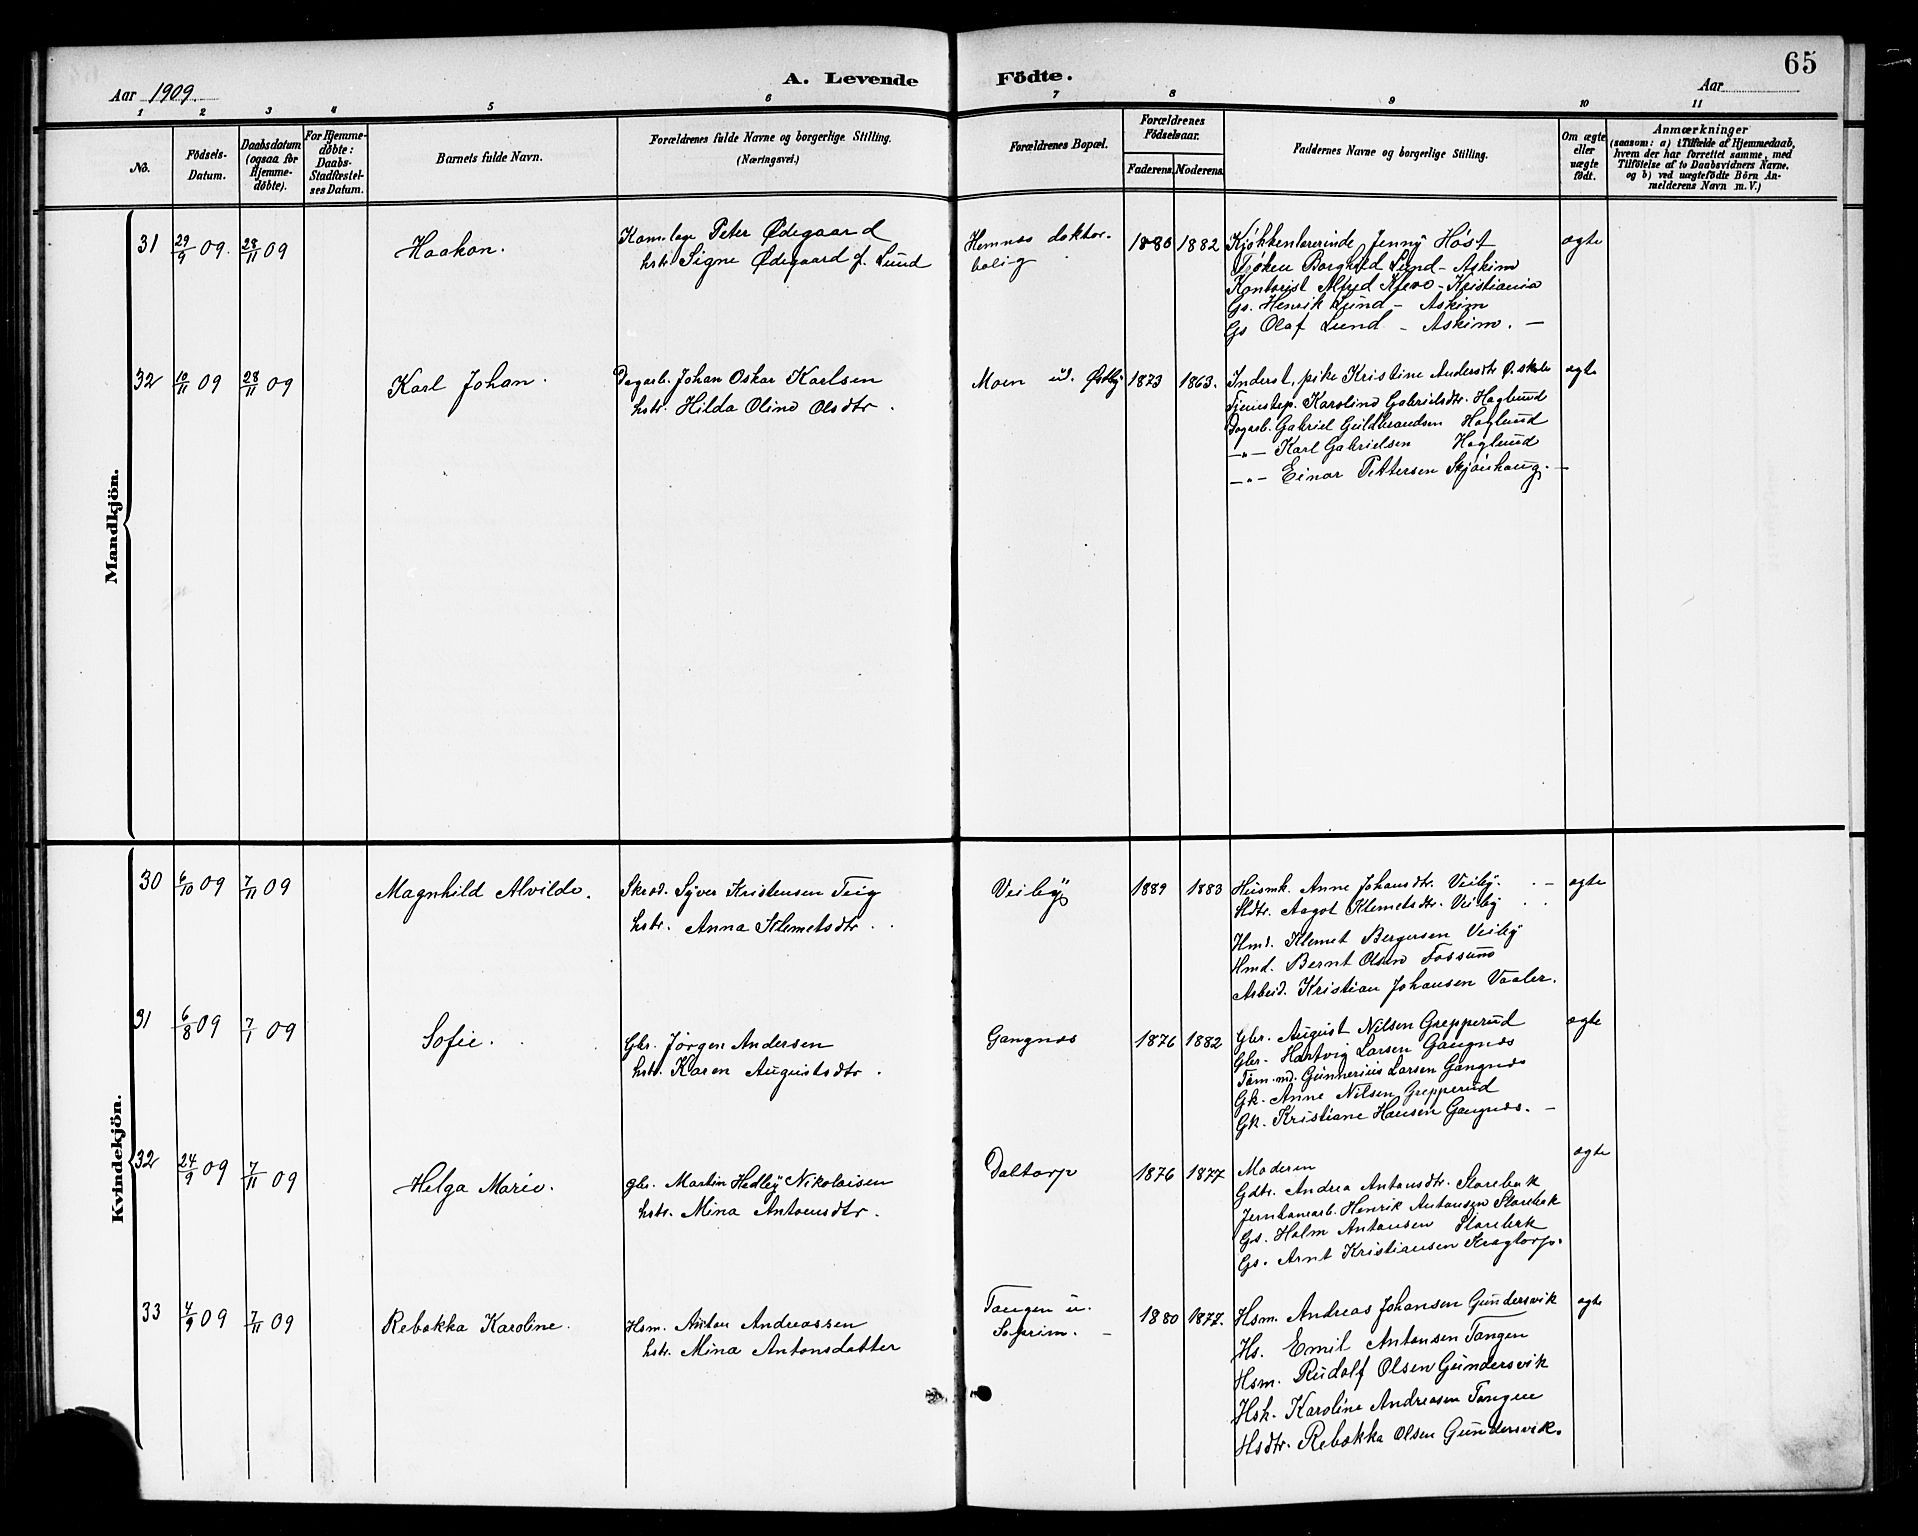 65
Aar 1909.
A. Levende Födte.
Aar
1 2 3 4 5 6 7 8 9 10 11
No.
Födsels-Datum.
Daabsdatum (ogsaa for Hjemme-døbte).
For Hjemme-døbte: Daabs-Stadfæstel-ses Datum.
Barnets fulde Navn.
Forældrenes fulde Navne og borgerlige Stilling.
(Næringsvei.)
Forældrenes Bopæl.
Forældrenes Födselsaar.
Faderens. Moderens.
Faddernes Navne og borgerlige Stilling.
Om ægte eller uægte født.
Anmærkninger
(saasom: a) i Tilfælde af Hjemmedaab,
hvem der har forrettet samme, med
Tilføielse af to Daabsvidners Navne.
og b) ved uægtefødte Börn An-
melderens Navn m. V.)
Mandkjön.
31 29/9 09. 28/11 09 Haakon. Peter Ødegaard
hstr. Signe Ødegaard f. Lund
Hemnæs doktor-
bolig
1880 1882
Kjøkkenlærerinde Jenny Høst
Frøken Borghild Lund - Askim
Kontorist Alfred - Kristiania
Gs. Henrik Lund - Askim
Gs Olaf Lund - Askim. -
ægte
32 10/11 09 28/11 09 Karl Johan. Dagarb. Johan Oskar Karlsen
hstr. Hilda Oline Olsdtr.
Moen u. Østby 1873 1863.
Inderst, pike Kristine Andersdtr
Tjenestep. Karoline Gabrielsdtr. Haglund
Dagarb. Gabriel Guldbrandsen Haglund
-"- Karl Gabrielsen Haglund
-"- Einar Pettersen Skjønhaug. -
ægte
Kvindekjön.
30 6/10 09 7/11 09 Magnhild Alvilde. Skræd. Syver Kristensen Teig
hstr. Anna Klemetsdtr.
Veiby 1889 1883
Husmk. Anne Johansdtr. Veiby. -
Aagot Klemetsdtr. Veiby
Hmd. Klemet Bergersen Veiby
Hmd. Bernt Olsen Fossum
Arbeid. Kristian Johansen Vaaler.
ægte
31 6/8 09 7/1 09 Sofie. Gbr. Jørgen Andersen
hstr. Karen Augustsdtr.
Gangnæs 1876 1882
Gbr. August Nilsen Grepperud
Gbr. Hartvig Larsen Gangnæs
Tøm.md. Gunnerius Larsen Gangnæs
Gk. Anne Nilsen Grepperud
Gk. Kristiane Hansen Gangnæs. -
ægte
32 24/9 09 7/11 09 Helga Marie. gbr. Martin Hedley Nikolaisen
hstr. Mina Antonsdtr.
Daltorp 1876 1877
Moderen
Gdtr. Andrea Antonsdtr. Storebæk
Jernbanearb. Henrik Antonsen Storebæk
Gs. Holm Antonsen Storebæk
Gs. Arnt Kristiansen Kragtorp.
ægte
33 4/9 09 7/11 09 Rebekka Karoline. Hsm. Anton Andreassen
hstr. Mina Antonsdatter
Tangen u.
1880 1877.
Hsm. Andreas Johansen Gundersvik
Hs. Emil Antonsen Tangen
Hsm. Rudolf Olsen Gundersvik
Hsk. Karoline Andreasen Tangen
Hsdtr. Rebekka Olsen Gundersvik.
ægte